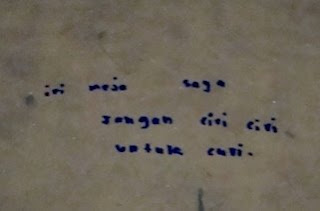 ini meja saya
jangan ciri ciri
untuk curi.